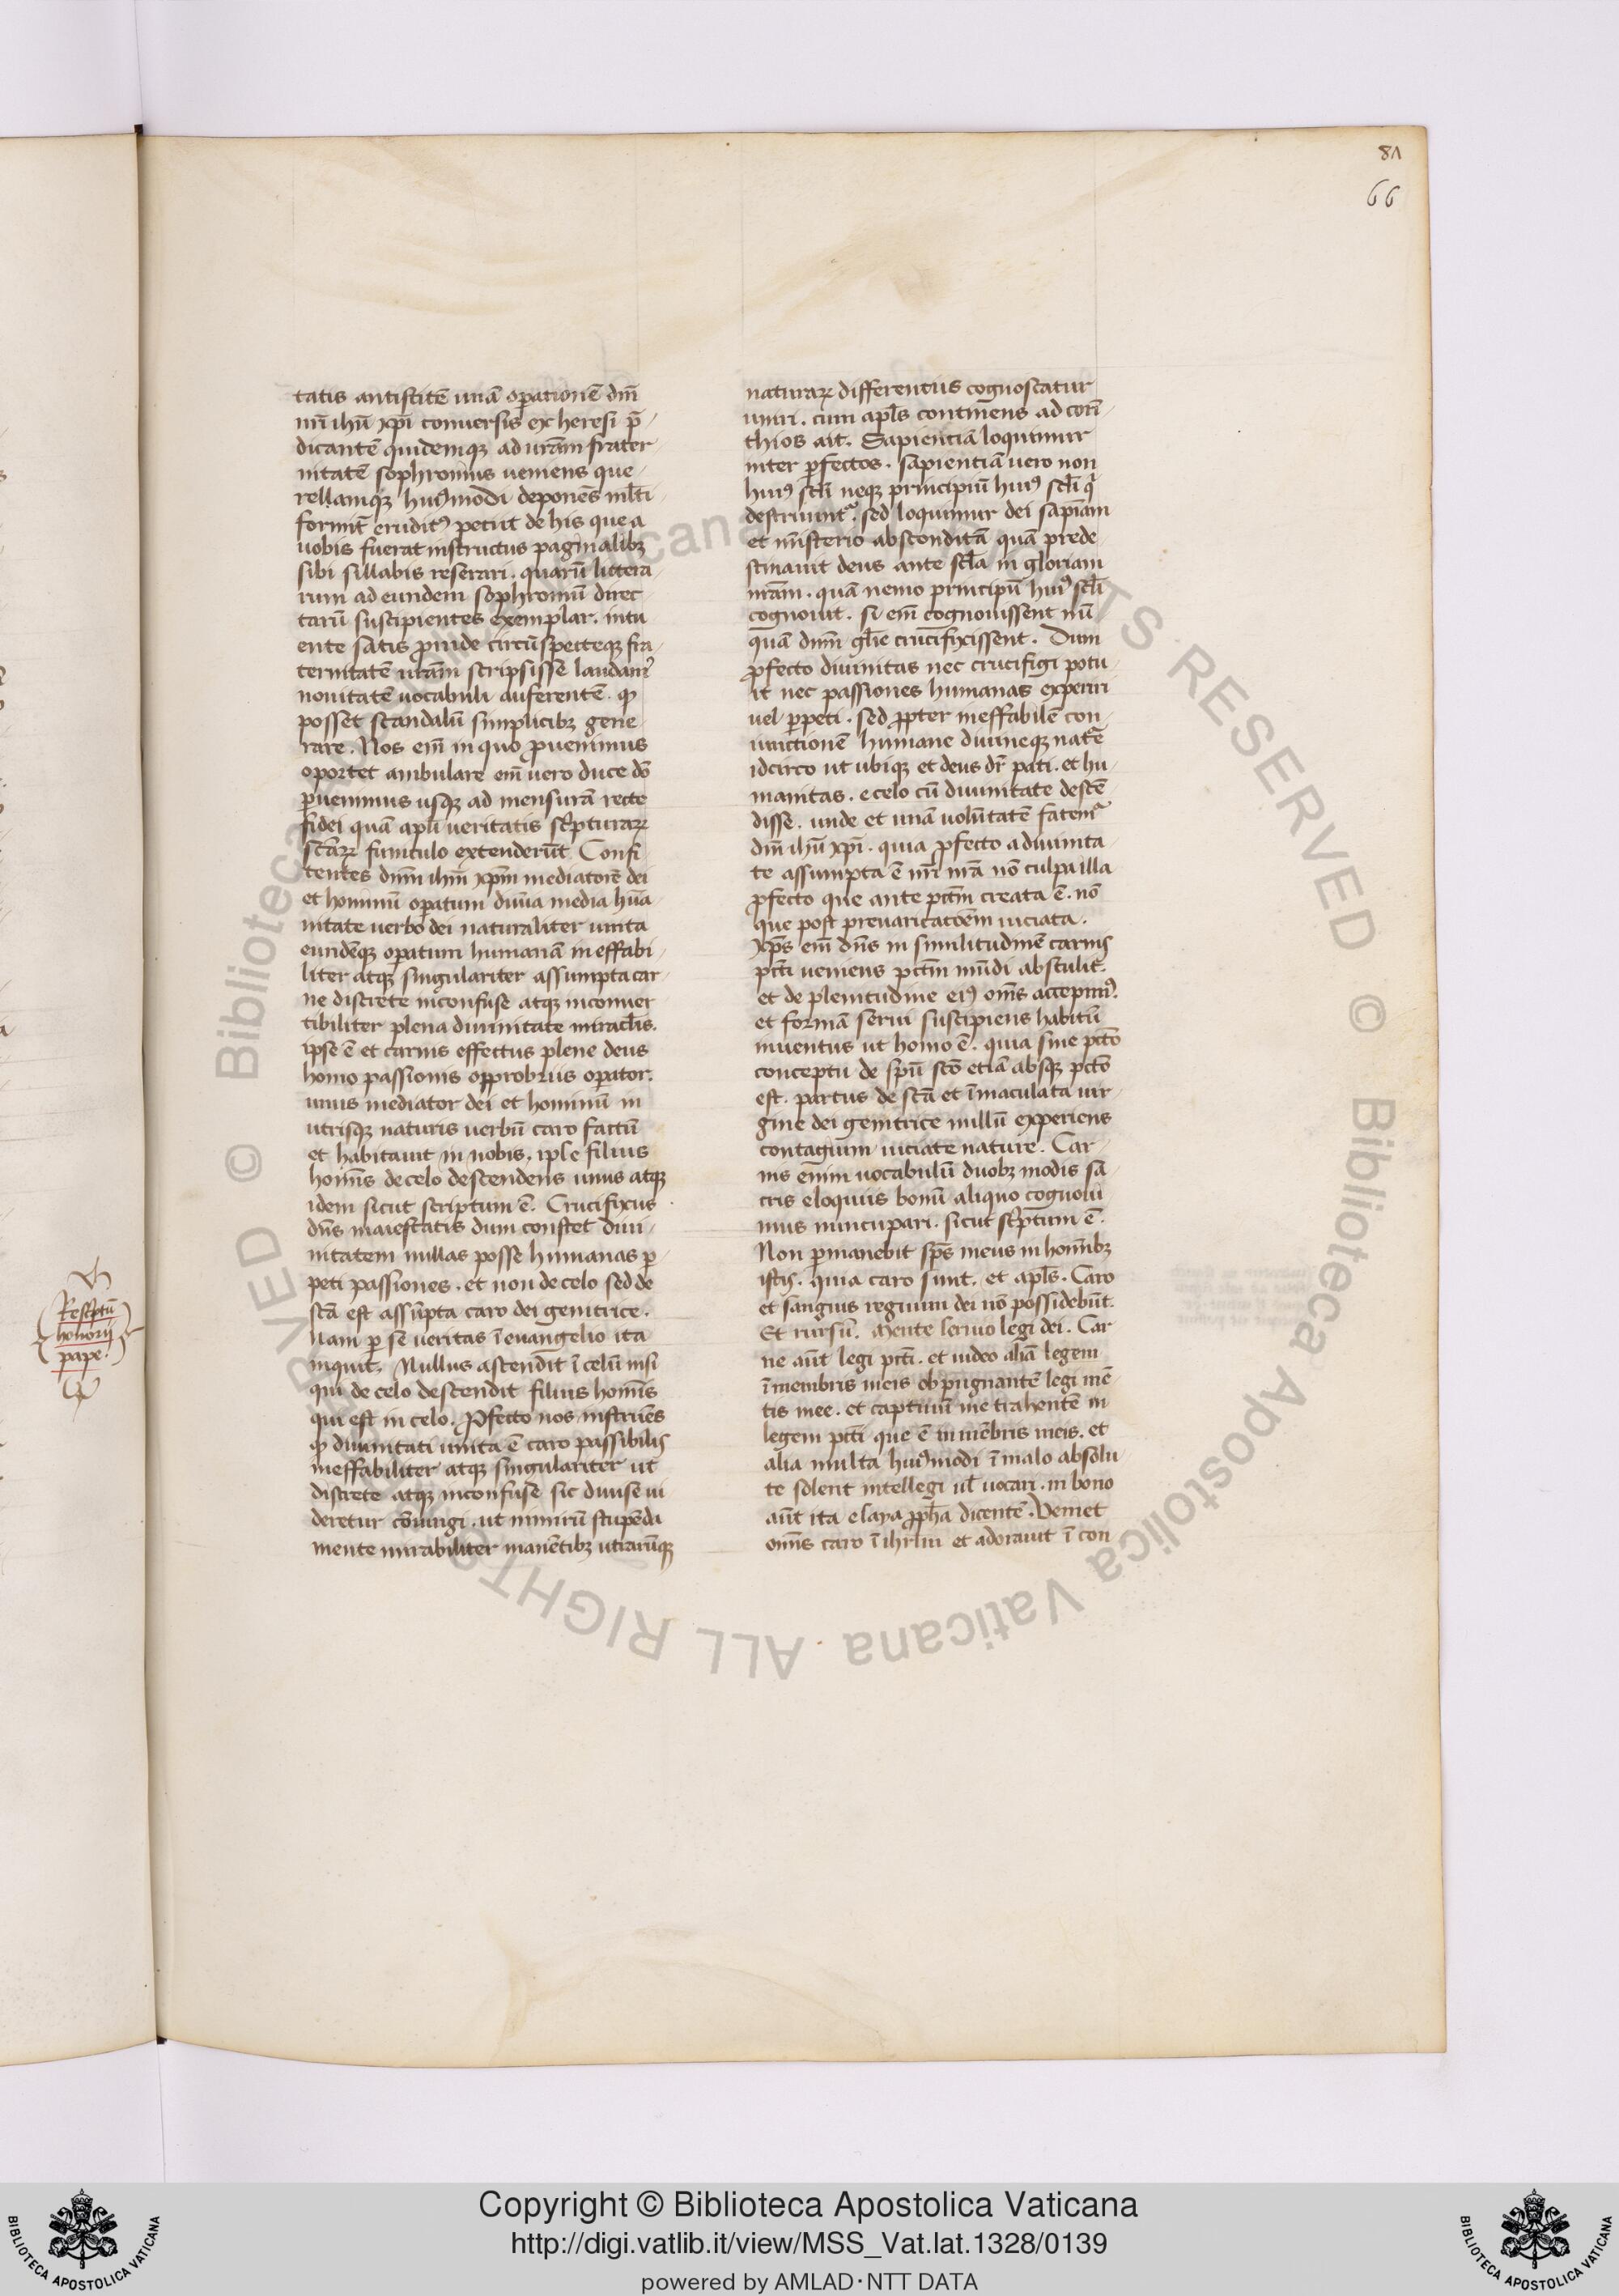 81
66
tatis antistitē unā opationē dn̄i
nr̄i ihū xp̄i conuersis ex heresi p̄
dicantē quidemqꝫ ad urām frater
nitatē sophronius ueniens que
rellamqꝫ huꝰmodi deponēs ml̄ti
formit̄ eruditꝰ petiit de his que a
uobis fuerat instructus paginalibꝫ
sibi sillabis reserari. quarū littera
rum ad eundem sophroniū direc
tarū suscipientes exemplar. intu
ente satis ꝓuide circūspecteqꝫ fra
ternitatē urām scripsisse laudamꝰ
nouitatē uocabuli auferentē. qꝫ
posset scandalū simplicibꝫ gene
rare. Nos em̄ in quo ꝓuenimus
oportet ambulare em̄ uero duce dō
ꝑuenimus usqꝫ ad mensurā recte
fidei quā apl̄i ueritatis scpturaꝝ
scāꝝ funiculo extenderūt Confi
tentes dn̄m ihm̄ xp̄m mediatorē dei
et hominū opatum diuīa media hūa
nitate uerbo dei naturaliter unita
eundēqꝫ opatum humanā ineffabi
liter atqꝫ singulariter assumpta car
ne discrete inconfuse atqꝫ inconuer
tibiliter plena diuinitate miracl̄is.
ipse ē et carnis effectus plene deus
homo passionis opprobriis opator.
unus mediator dei et hominū in
utrisqꝫ naturis uerbū caro factū
et habitauit in nobis. ipse filius
hoīs de celo descendens unus atqꝫ
idem sicut scriptum ē. Crucifixus
dn̄s maiestatis dum constet diui
nitatem nullas posse humanas ꝑ
peti passiones. et non de celo sed de
scā est assūpta caro dei genitrice.
Nam ꝑ se ueritas ī euangelio ita
inquit. Nullus ascendit ī celū nisi
qui de celo descendit filius hominis
qui est in celo. Ꝓfecto nos instruēs
qꝫ diuinitati unita ē caro passibilis
ineffabiliter atqꝫ singulariter ut
discrete atqꝫ inconfuse sic diuise ui
deretur cōiungi. ut nimirū stupēda
mente mirabiliter manētibꝫ utrarūqꝫ
Rescptū
honorij
pape.
naturaꝝ differentiis cognoscatur
uniri. cum apl̄s continens ad corī
thios ait. Sapientiā loquimur
inter ꝑfectos. sapientiā uero non
huiꝰ scl̄i neqꝫ principiū huiꝰ scl̄i q
destruunt᷑. sed loquimur dei sapīam
et ministerio absconditā quā prede
stinauit deus ante scl̄a in gloriam
nrām. quā nemo principū huiꝰ scl̄i
cognouit. si em̄ cognouissent nū
quā dnm̄ gl̄ie crucifixissent. Dum
ꝓfecto diuinitas nec crucifigi potu
it nec passiones humanas experiri
uel ꝑpeti. sed ꝓpter ineffabilē con
iunctionē humane diuineqꝫ nature
idcirco ut ubiqꝫ et deus dr̄ pati. et hu
manitas. e celo cū diuinitate descē
disse. unde et unā uolūtatē fatem᷑
dn̄i ihū xp̄i. quia ꝓfecto a diuinita
te assumpta ē nr̄i nrā nō culpa illa
ꝓfecto que ante pctm̄ creata ē. nō
que post preuaricatōem uiciata.
xp̄s em̄ dn̄s in similitudinē carnis
pcti ueniens pctm̄ mūdi abstulit.
et de plenitudine eiꝰ oms accepimꝰ.
et formā serui suscipiens habitū
inuentus ut homo ē. quia sine pctō
conceptu de spū scō etiā absqꝫ pctō
est. partus de scā et īmaculata uir
gine dei genitrice nullū experiens
contagium uiciate nature. Car
nis enim uocabulū duobꝫ modis sa
cris eloquiis bonū aliquo cognoui
mus nuncupari. sicut scptum ē.
Non ꝑmanebit sps meus in hominibꝫ
istis. quia caro sunt. et apl̄s. Caro
et sanguis regnum dei nō possidebūt.
Et rursū. Mente seruo legi dei. Car
ne aūt legi pcti. et uideo aliā legem
ī membris meis obpugnantē legi mē
tis mee. et captiuū me trahentē in
legem pcti que ē in mēbris meis. et
alia multa huꝰmodi ī malo absolu
te solent intellegi ul̄ uocari. in bono
aūt ita esaya ꝓpha dicente. Veniet
omīs caro ī ihrlm et adorauit ī con
© Biblioteca Apostolica Vaticana ALL RIGHTS RESERVED © Biblioteca Apostolica Vaticana ALL RIGHTS RESERVED
BIBLIOTECA APOSTOLICA VATICANA
Copyright © Biblioteca Apostolica Vaticana
http://digi.vatlib.it/view/MSS_Vat.lat.1328/0139
powered by AMLAD·NTT DATA
BIBLIOTECA APOSTOLICA VATICANA